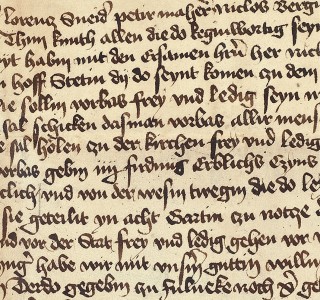 lorencz Sneid' petir maher Niclos Bergi
Thun kunth allen die do keginwortig seyn
yt habin mit den Ersamen hrn her nic
hoff Stetin dy do seynt komen czu dem
ie sollin vorbas frey vnd ledig seyn
sal schicken das man vorbas allir
sal holen czu der kirchen frey vnd ledig
vorbas gebin iiij firdung Erblichs Czyns
clich vnd von der wesin twegin die do le
sie geteilit yn acht Gartin czu notze
nd vor der Stat frey vnd ledig gehen vor
habe wir mit vnsin guttin willin
Derdo gegebin czu fulneke noch